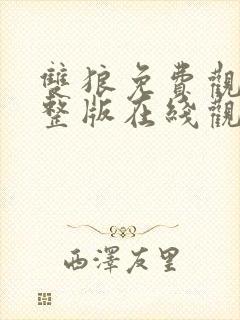 雙狼免費觀
整版在綫觀
西澤友里